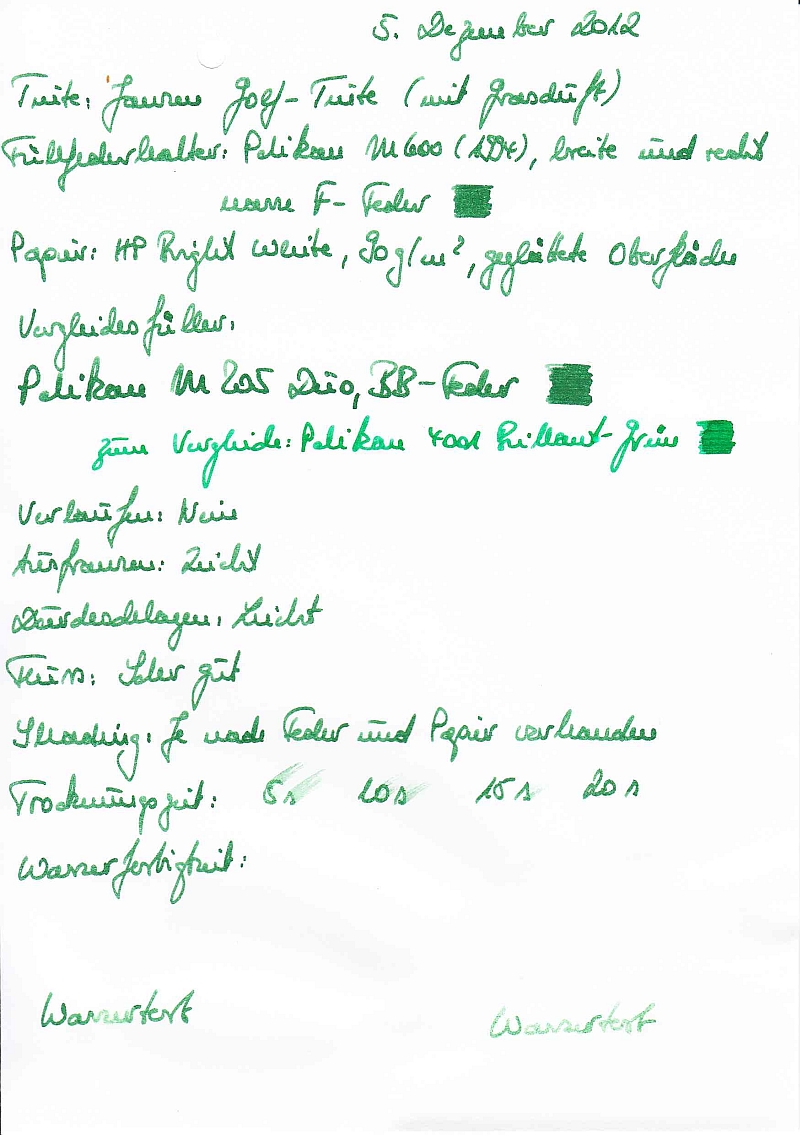 5. Dezember 2012
Tinte: Jansen Golf-Tinte (mit Grasduft)
Füllfederhalter: Pelikan M600 (1994), breite und recht
nasse F-Feder
Papier: HP Bright White, 90g/m², geglättete Oberfläche
Vergleichsfüller:
Pelikan M205 Duo, BB-Feder
zum Vergleich: Pelikan 4001 Brillant-Grün
Verlaufen: Nein
Ausfransen: Leicht
Durchschlagen: Leicht
Fluss: Sehr gut
Shading: Je nach Feder und Papier vorhanden
Trocknungszeit: 5s 10s 15s 20s
Wasserfestigkeit:
Wassertest Wassertest